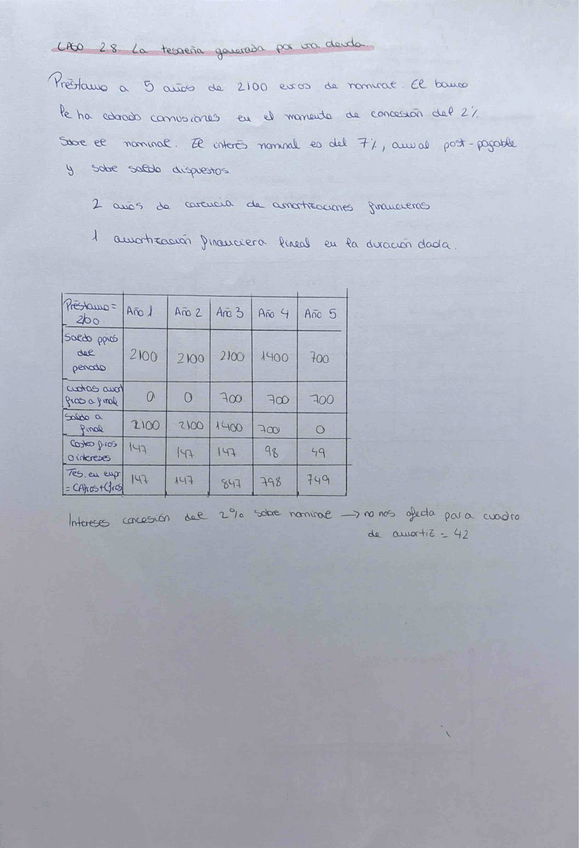 CASO 2.8 La tesorería generada por una deuda
Préstamo a 5 años de 2100 euros de nominal. El banco
le ha cobrado comisiones en el momento de concesión del 2%
sobre el nominal. El interés nominal es del 7%, anual post-pagable
y sobre saldo dispuestos
2 años de carencia de amortizaciones financieras
1 amortización financiera lineal en la duración dada.
Préstamo = 2100 Año 1 Año 2 Año 3 Año 4 Año 5
Saldo ppios del periodo 2100 2100 2100 1400 700
cuotas amort fras a final 0 0 700 700 700
Saldo a final 2100 2100 1400 700 0
Costes fros o intereses 147 147 147 98 49
Tes. en empr = 147 147 847 798 749
Intereses concesión del 2% sobre nominal → no nos afecta para cuadro
de amortiz = 42